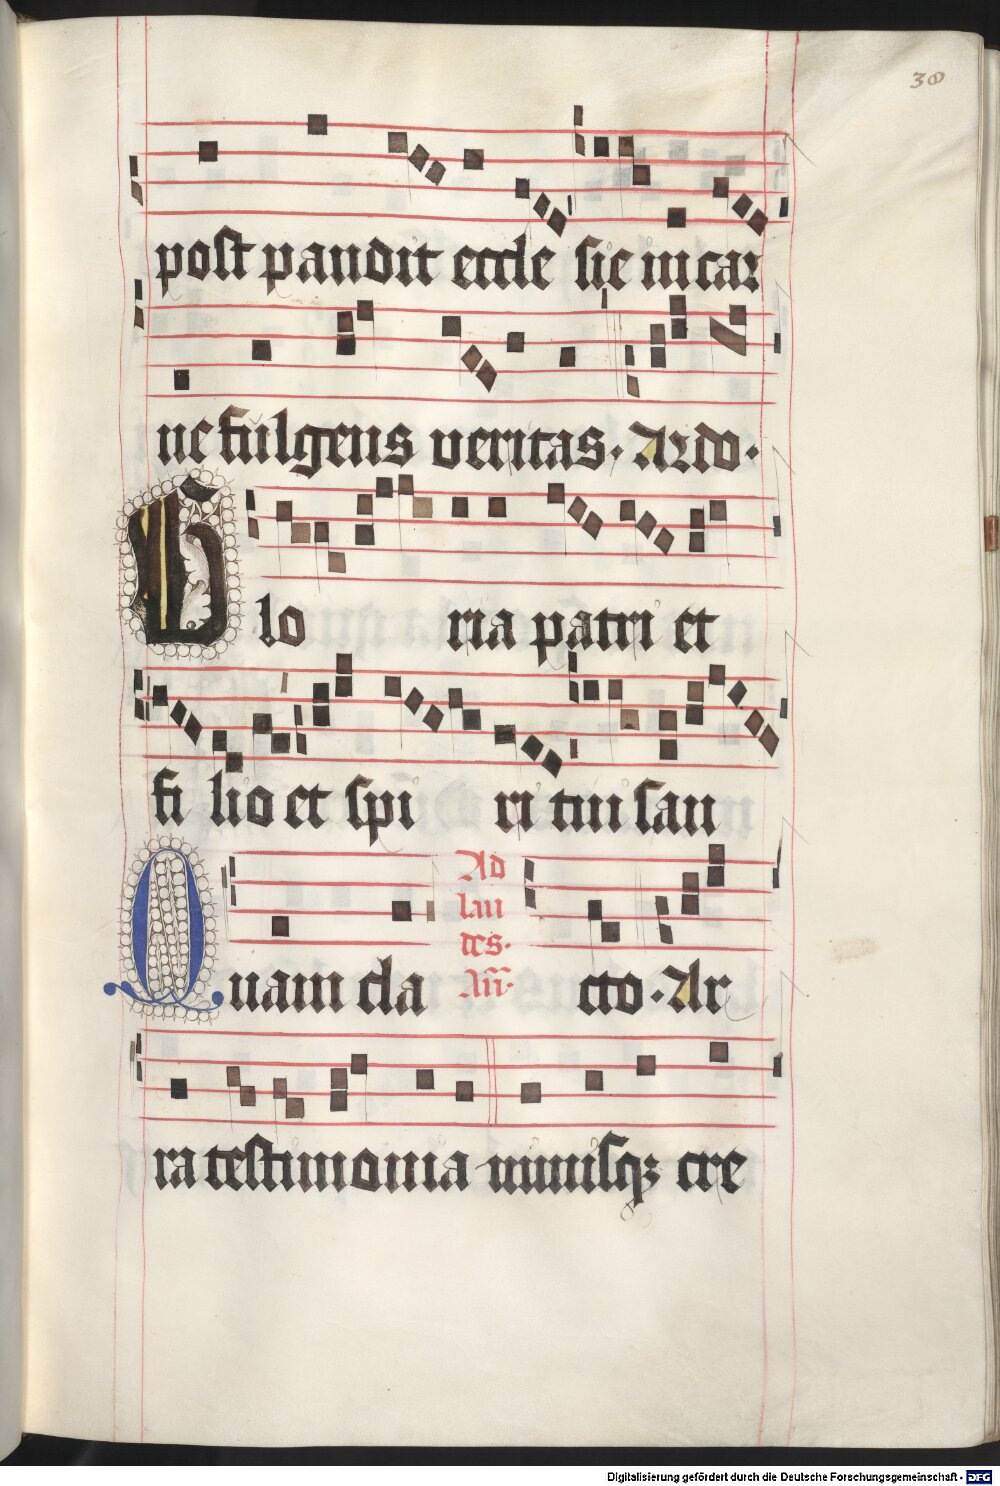 38
post pandit eccle sie in car
ne fulgens veritas. Ardo.
Glo ria patri et
fi lio et spi ri tui san
Quam cla Ad lau des. Añ. cto. Ar
ra testimonia nimisqꝫ cre
Digitalisierung gefördert durch die Deutsche Forschungsgemeinschaft - DFG